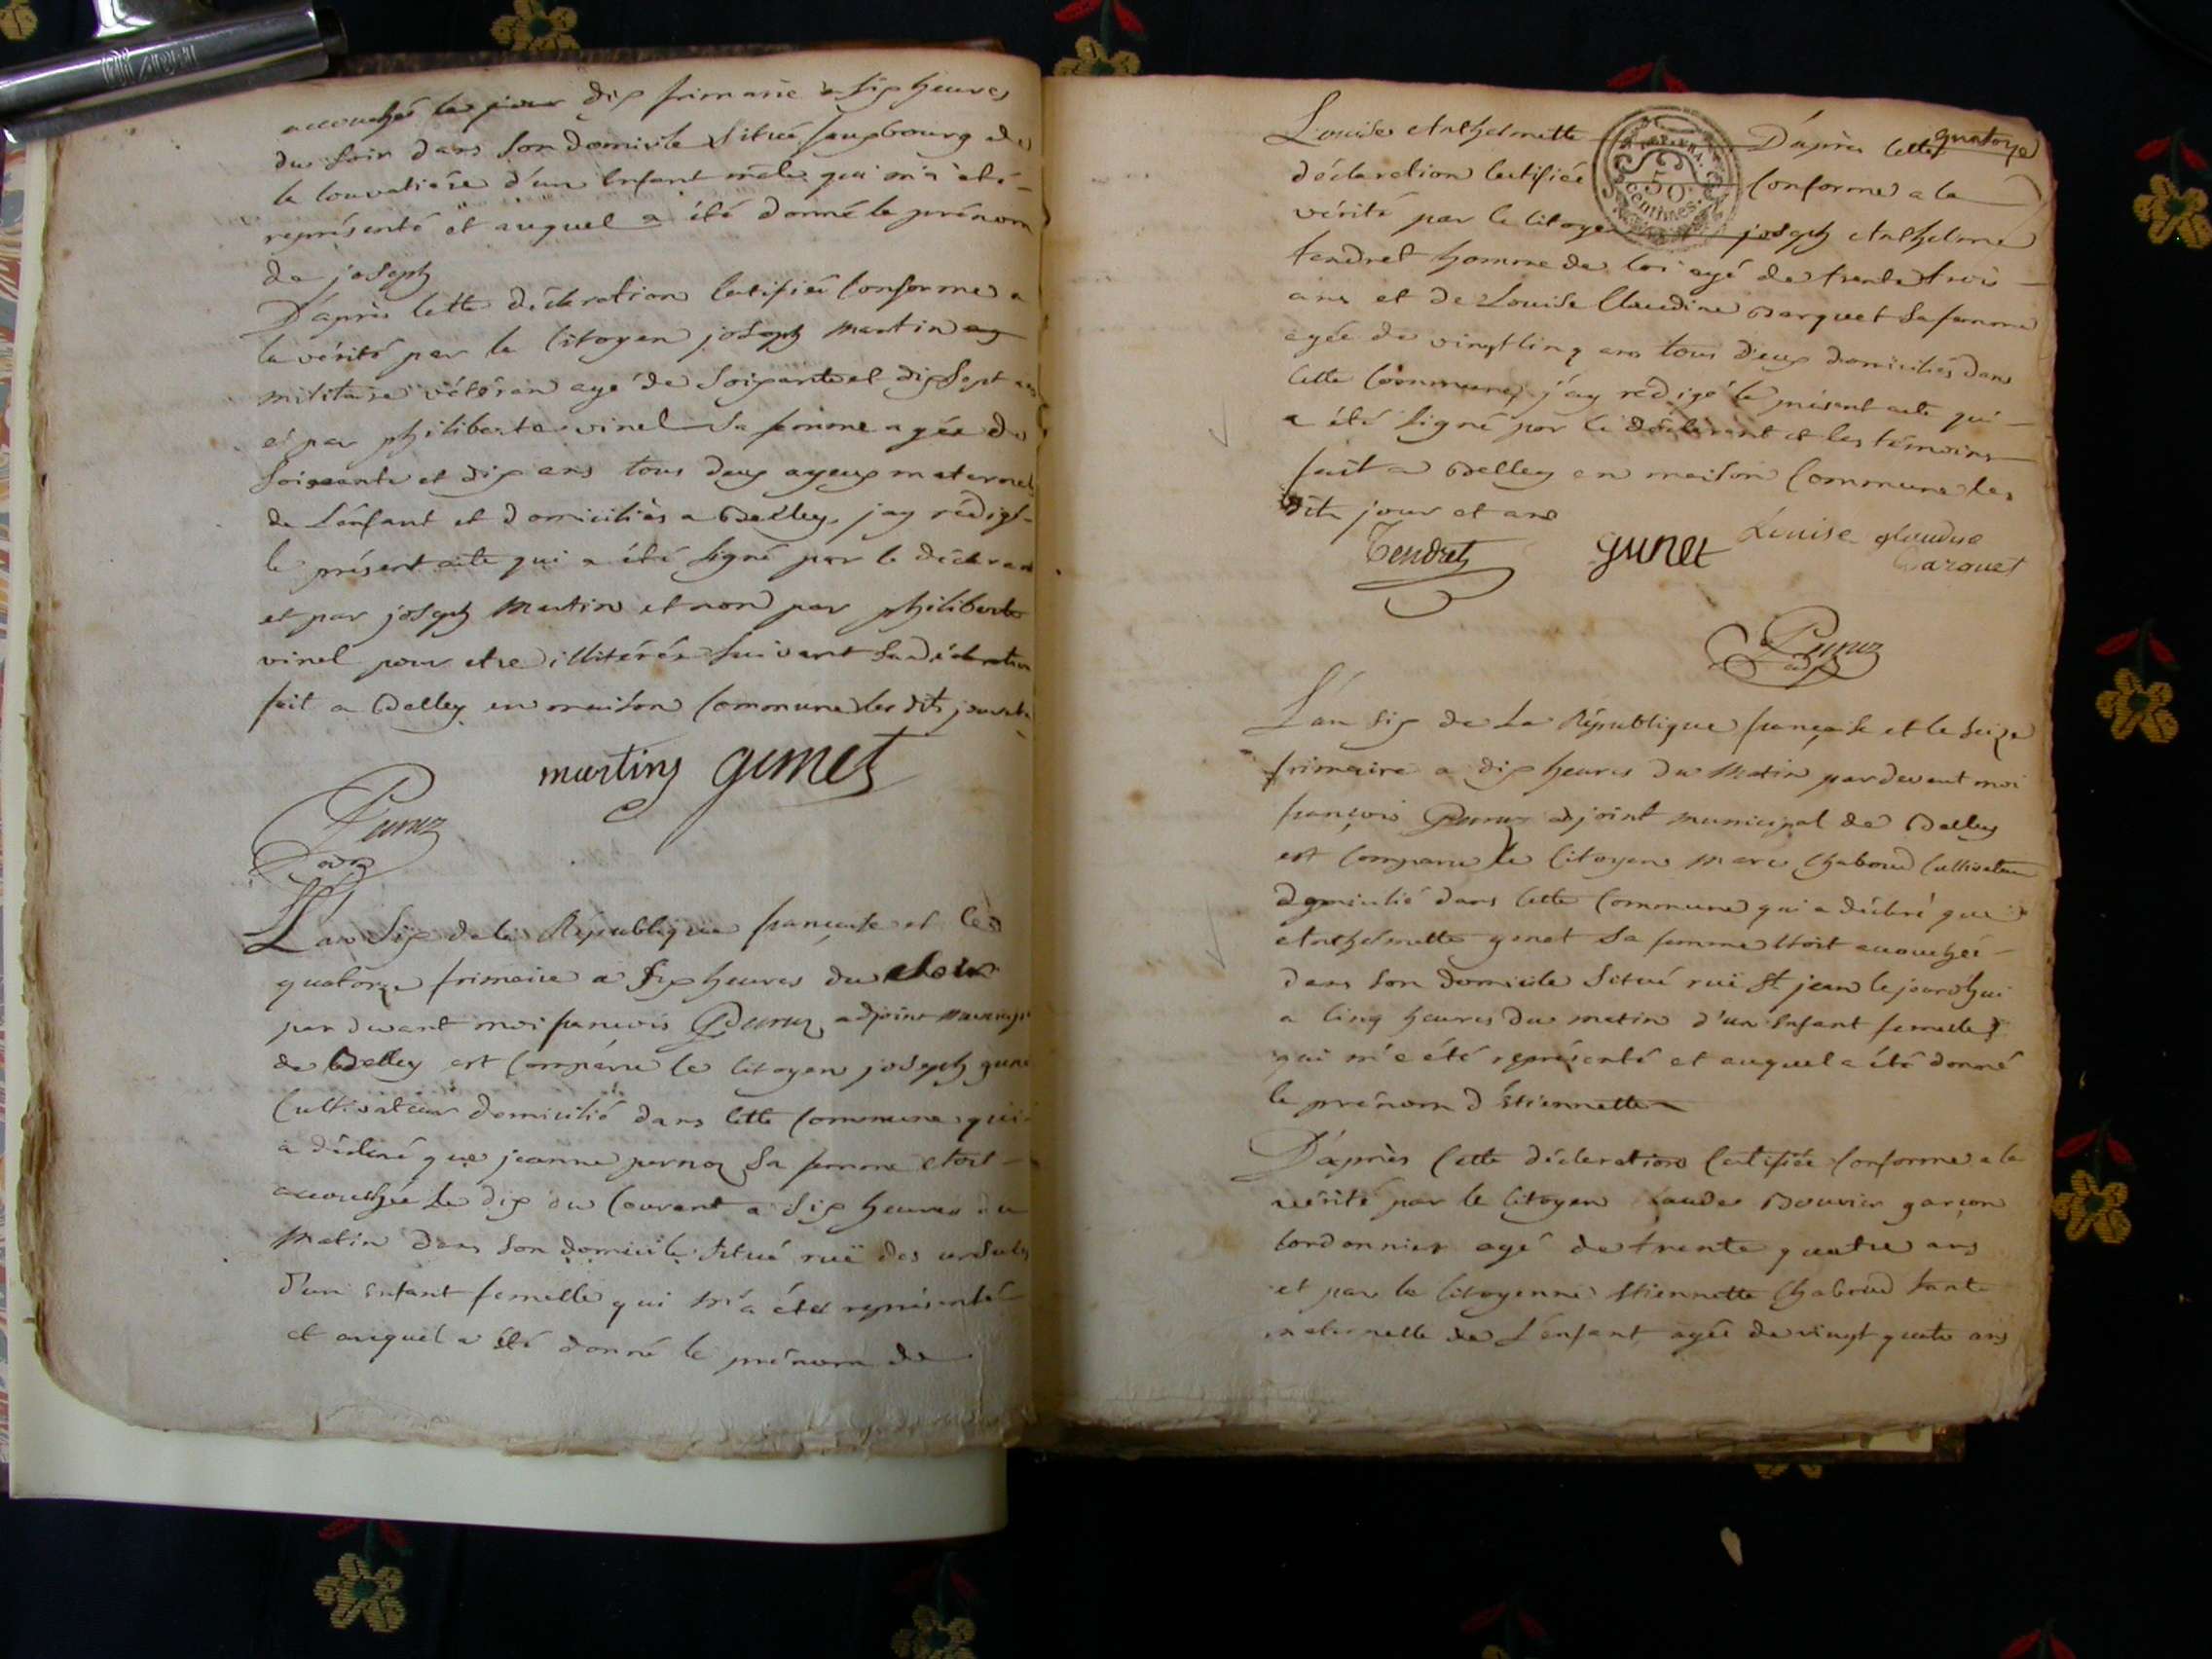 accouchée le jour dix frimaire a six heures
du soir dans son domicile situé fauxbourg de
la louvatiere d'un enfant mâle qui m'a été
représenté et auquel a été donné le prénom
de joseph
D'après cette déclaration certifiée conforme a
la vérité par le Citoyen joseph martin
militaire vétéran agé de soixante et dix sept ans
et par philiberte vinel sa femme agée de
soixante et dix ans tous deux ayeux maternels
de L'enfant et domiciliés a Belley, jay rédigé
le présent acte qui a été signé par le déclarant
et par joseph Martin et non par philiberte
vinel pour etre illitérée suivant sa déclaration
fait a Belley en maison Commune les dits jour et an
martin gunet
Peruz
adj
L'an Six de la République francaise et le
quatorze frimaire a six heures du soir
par devant moi francois Peruz adjoint municipal
de Belley est comparu le citoyen joseph gunet
Cultivateur domicilié dans cette commune qui
a déclaré que jeanne pernoz sa femme etoit
accouchée le dix du Courant a six heures du
Matin dans son domicile situé rue des ursules
d'un enfant femelle qui m'a été représenté
et auquel a été donné le prénom de
quatorze
Louise Anthelmette D'après cette
50 Centimes.
déclaration certifiée conforme a la
vérité par le Citoyen joseph Anthelme
tendret homme de loi agé de trente trois
ans et de Louise Claudine Barquet sa femme
agée de vingt cinq ans tous deux domiciliés dans
cette Commune, j'ay rédigé le présent acte qui
a été signé par le déclarant et les témoins
fait a Belley en maison Commune les
dits jour et an
Tendret gunet Louise Claudine
Barquet
Peruz
adj
L'an six de La République francaise et le seize
frimaire a dix heures du Matin pardevant moi
francois Peruz adjoint municipal de Belley
est comparu le Citoyen Marc Chaboud Cultivateur
domicilié dans cette Commune qui a déclaré que
Anthelmette genet sa femme etoit accouchée
dans son domicile situé rue St jean lejourdhui
a cinq heures du matin d'un enfant femelle
qui m'a été représenté et auquel a été donné
le prénom d'Etiennette
D'après Cette déclaration Certifiée Conforme a la
vérité par le Citoyen Claude Bouvier garçon
cordonnier agé de trente quatre ans
et par la Citoyenne Etiennette Chaboud tante
maternelle de L'enfant agée de vingt quatre ans